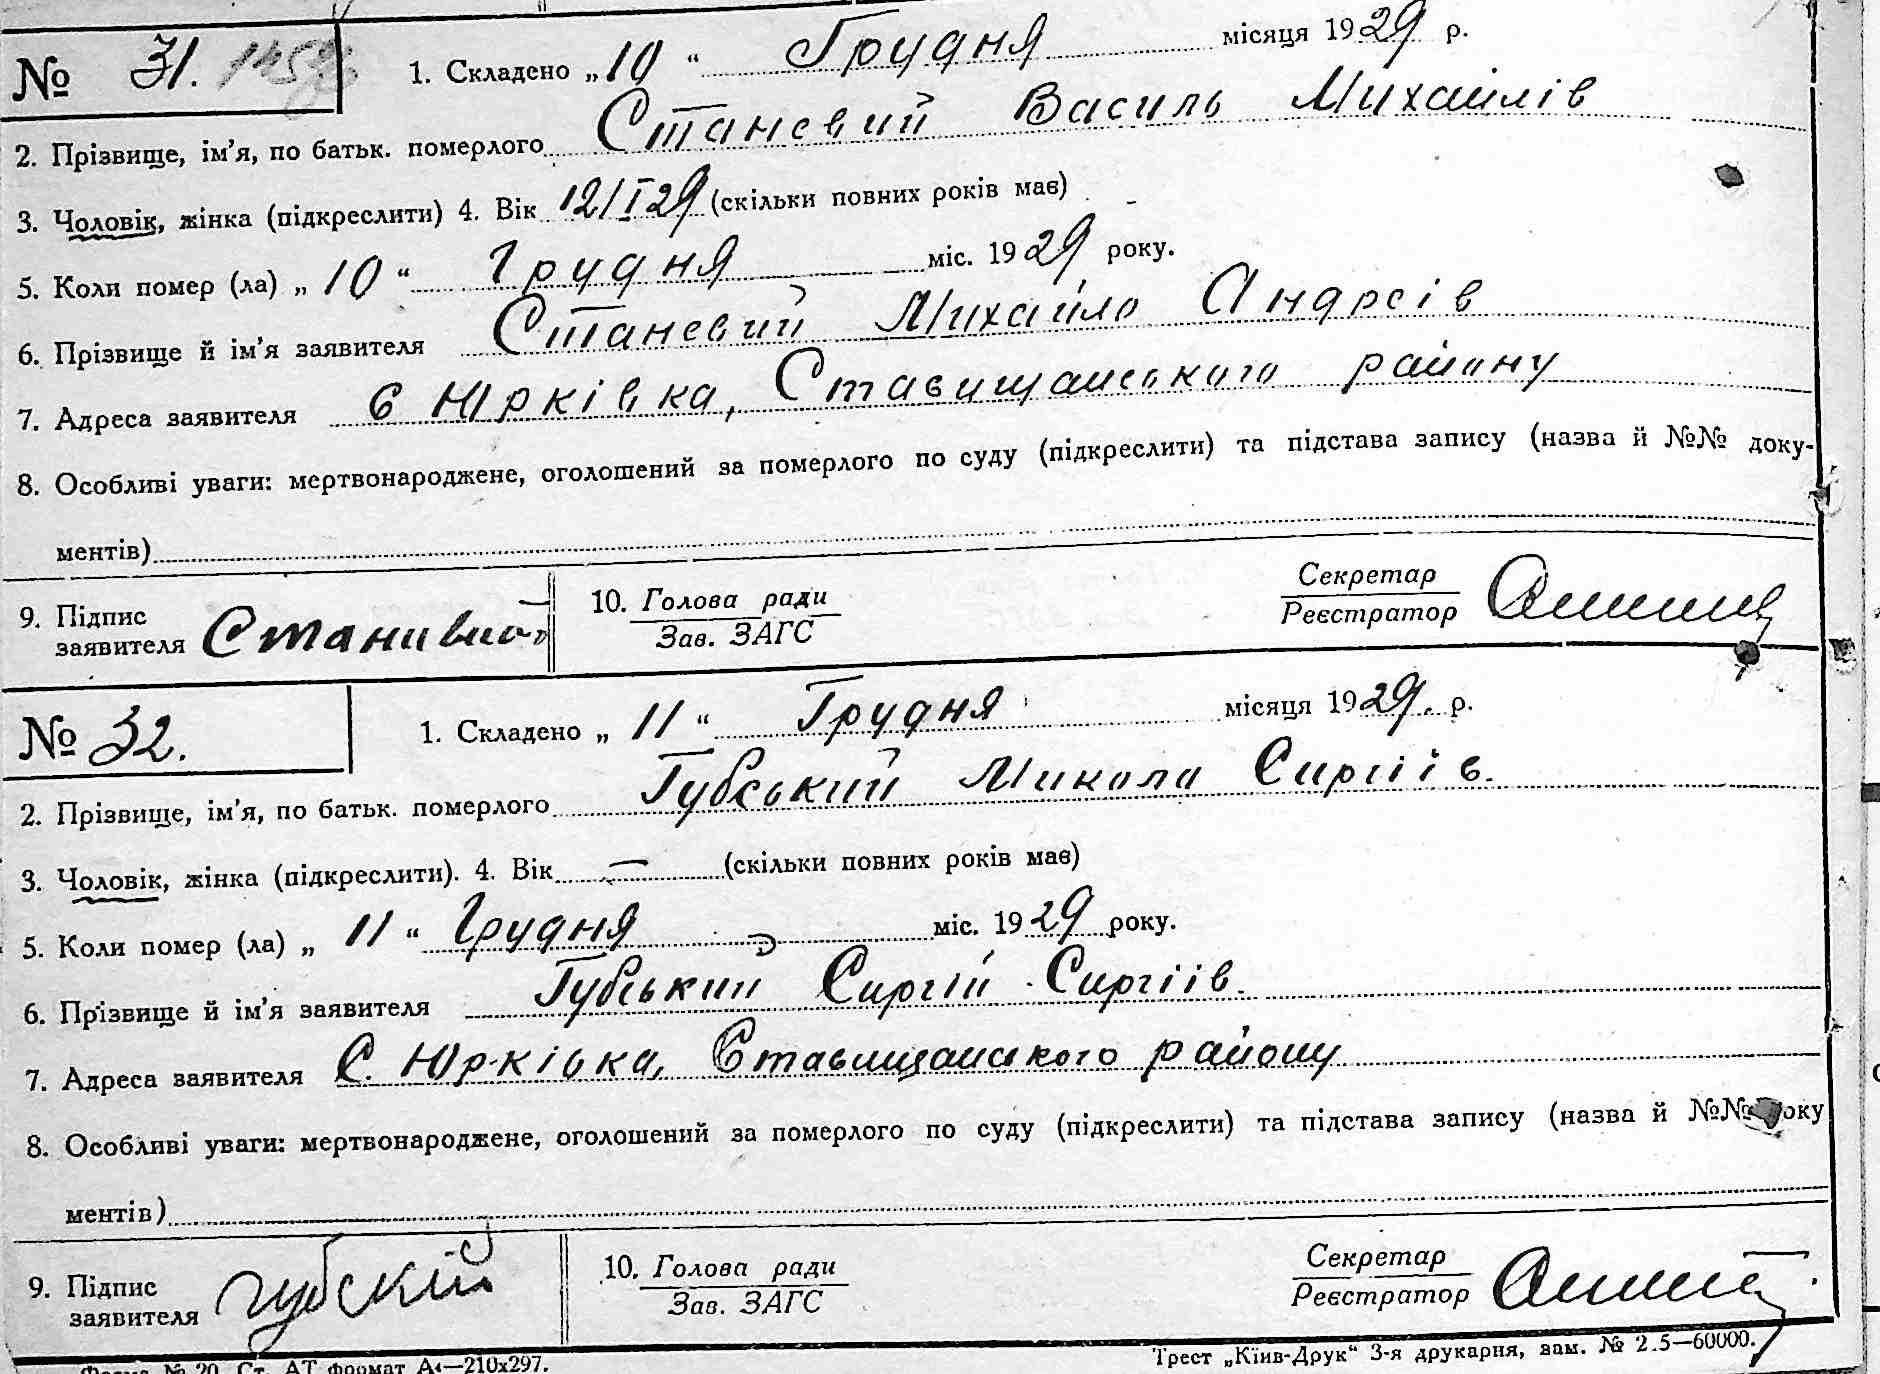 № 31. 1. Складено „10“ Грудня місяця 1929 р.
2. Прізвище, ім’я, по батьк. померлого Станевий Василь Михайлів
3. Чоловік, жінка (підкреслити) 4. Вік 12/I 29 (скільки повних років має)
5. Коли помер (ла) „10“ Грудня міс. 1929 року.
6. Прізвище й ім’я заявителя Станевий Михайло Андреів
7. Адреса заявителя с Юрківка, Ставищанського району
8. Особливі уваги: мертвонароджене, оголошений за померлого по суду (підкреслити) та підстава запису (назва й №№ доку-
ментів)
9. Підпис заявителя Станивий
10. Голова ради
Зав. ЗАГС
Секретар
Реєстратор
№ 32. 1. Складено „11“ Грудня місяця 1929. р.
2. Прізвище, ім’я, по батьк. померлого Губський Микола Сиргіїв.
3. Чоловік, жінка (підкреслити). 4. Вік — (скільки повних років має)
5. Коли помер (ла) „11“ Грудня міс. 1929 року.
6. Прізвище й ім’я заявителя Губський Сиргій Сиргіїв.
7. Адреса заявителя С. Юрківка, Ставищанського району
8. Особливі уваги: мертвонароджене, оголошений за померлого по суду (підкреслити) та підстава запису (назва й №№ доку
ментів)
9. Підпис заявителя Губский
10. Голова ради
Зав. ЗАГС
Секретар
Реєстратор
Форма № 20. Ст. АТ формат А4—210х297.
Трест „Київ-Друк“ 3-я друкарня, зам. № 2.5—60000.